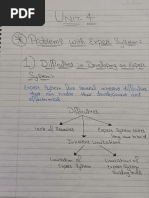 Unit 4
Problems with Expert Systems
1) Difficulties in Developing an Expert
System:
Expert System has several inherent difficulties
that can hinder their development and
effectiveness.
Difficulties
Lack of Resources
Expert System have
long development
Domain Limitations
Limitation of
Expert System
Limitations of
Expert System
building tools